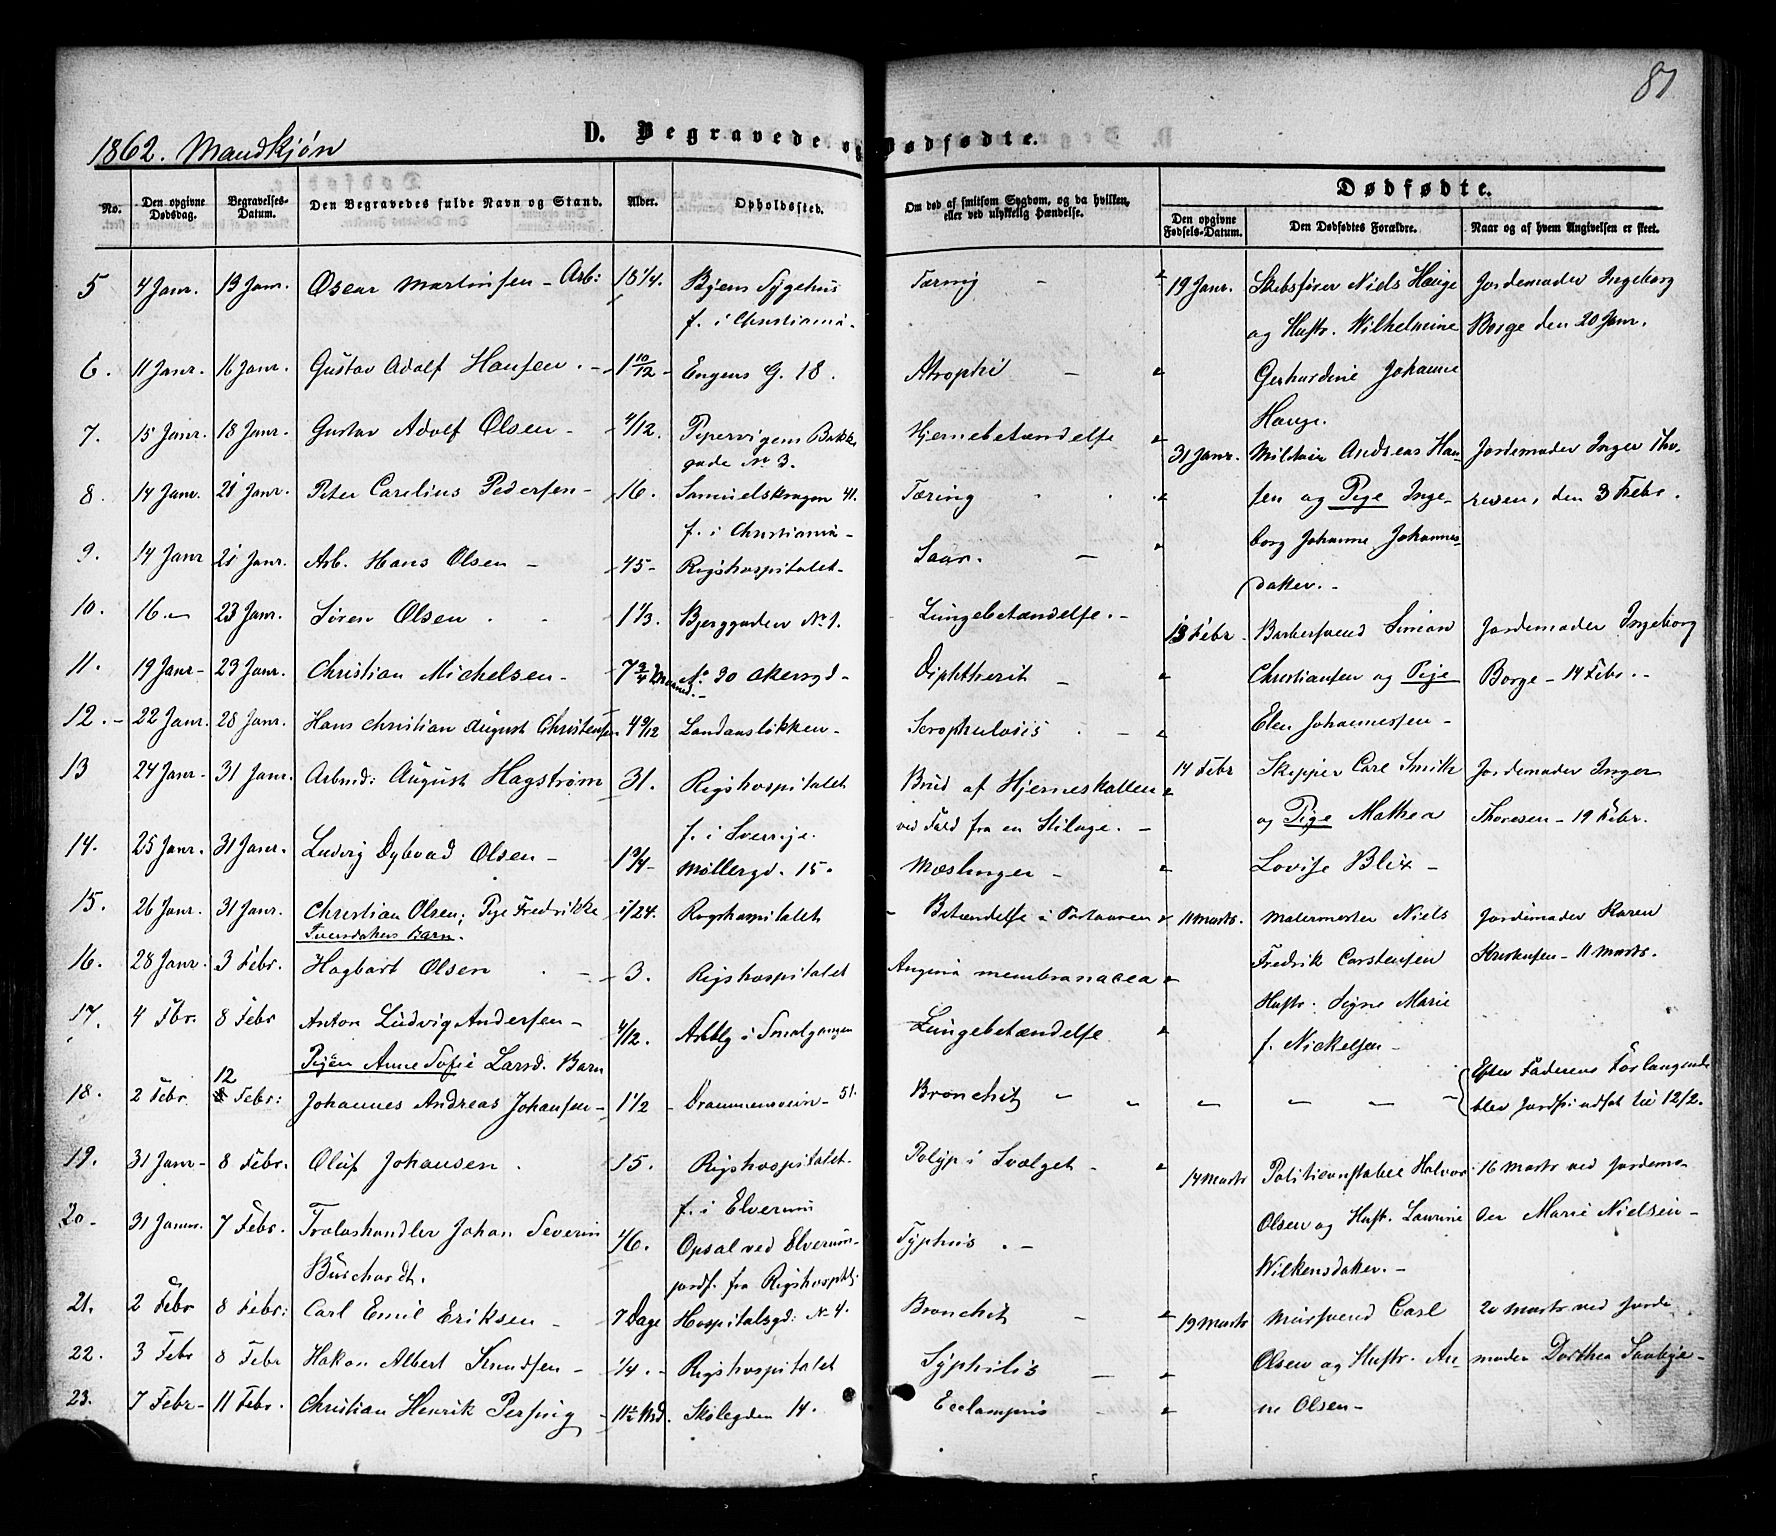 87
1862. Mandkjøn
D. Begravede og Dødfødte.
No.
Den opgivne Dødsdag.
Begravelses-Datum.
Den Begravedes fulde Navn og Stand.
Alder.
Opholdssted.
Om død af smitsom Sygdom, og da hvilken, eller ved ulykkelig Hændelse.
Dødfødte.
Den opgivne Fødsels-Datum.
Den Dødfødtes Forældre.
Naar og af hvem Angivelsen er skeet.
5 4 Janr. 13 Janr. Oscar Martinsen - Arb: 18 1/4. Byens Sygehus Tæring -
f. i Christiania -
6. 11 Janr. 16 Janr. Gustav Adolf Hansen. - 1 10/12 - Engens G. 18. Atrophi -
7. 15 Janr. 18 Janr. Gustav Adolf Olsen - 4/12. Pipervigens Bakke Hjernebetændelse
gade No 3.
8. 14 Janr. 21 Janr. Peter Carelius Pedersen - 16. Samuelskragen 41. Tæring
f. i Christiania -
9. 14 Janr 21 Janr. Arb. Hans Olsen - 45 - Rigshospitalet - Saar. -
10. 16 - 23 Janr. Søren Olsen 1 1/3. Bjerggaden No 1. Lungebetændelse. -
11. 19 Janr - 23 Janr. Christian Michelsen - 7 3/4 No 30 Akersgd - Diphtherit -
12. - 22 Janr. 28 Janr. Hans Christian August Christensen 4 9/12 Landansløkken - Scrophulosis -
13 24 Janr - 31 Janr. Arbmd: August Hagstrøm 31. Rigshospitalet Brud af Hjerneskallen
f. i Sverrige. ved Fald fra en Stilage. -
14. 25 Janr. 31 Janr. Ludvig Dybvad Olsen - 1 3/4 - Møllergd. 15. Mæslinger -
15. 26 Janr. 31 Janr. Christian Olsen, Pige Fredrikke 1/24. Rigshospitalet - Betændelse i
Barn.
16. 28 Janr. 3 Febr. Hagbart Olsen - 3. Rigshospitalet Angina membranacea
17. 4 Fbr. 8 Febr Anton Ludvig Andersen - 4/12. Arbblg i Smalgangen Lungebetændelse
Pigen Anne Sofie Larsd. Barn
18. 2 Febr 12 Febr: Johannes Andreas Johansen - 1 1/2 - Drammensvein - 51. Bronchit
19. 31 Janr - 8 Febr. Oluf Johansen. 15. Rigshospitalet - Polyp i Svælget -
f. i Elverum
20 - 31 Janr. 7 Febr. Trælasthandler Johan Severin 46. Opsal ved Elverum - Typhus. -
jordf. fra Rigshosptl.
21. 2 Febr 8 Febr: Carl Emil Eriksen - 7 Dage Hospitalsgd: No 4. Bronchit -
22. 3 Febr 8 Febr Hakon Albert Knudsen - 1/4. - Rigshospitalet Syphilis -
23. 7 Febr - 11 Febr. Christian Henrik - 11 1/2 Skolegden 14. Eclampsis -
19 Janr. Skibsfører Niels Hauge Jordemoder Ingeborg
og Hustr. Wilhelmine Borge den 20 Janr.
Gerhardine Johanne
Hauge.
31 Janr. Militair Andreas Han- Jordemoder Inger Tho-
sen og Pige Inge- resen, den 3 Febr.
borg Johanne Johannes-
datter. -
13 Febr. Barbersvend Simon Jordemoder Ingeborg
Christiansen og Pige Borge - 14 Febr. -
Elen Johannessen -
14 Febr Skipper Carl Smith Jordemoder Inger
og Pige Mathea Thoresen - 19 Febr.
Lovise Blix -
11 Marts. Malermester Niels Jordemoder Karen
Fredrik Carstensen Kristensen - 11 Marts.
Hustr. Signe Marie
f. Nickelsen -
Efter Faderens Forlangende
blev Jordf. udsat til 12/2.
14 Marts Politiconstabel Halvor 16 Marts ved Jordemo-
Olsen og Hustr. Laurine der Marie Nielsen -
Wilkensdatter. -
19 Marts Mursvend Carl 20 Marts ved Jorde-
Olsen og Hustr. An- moder Dorthea
ne Olsen -